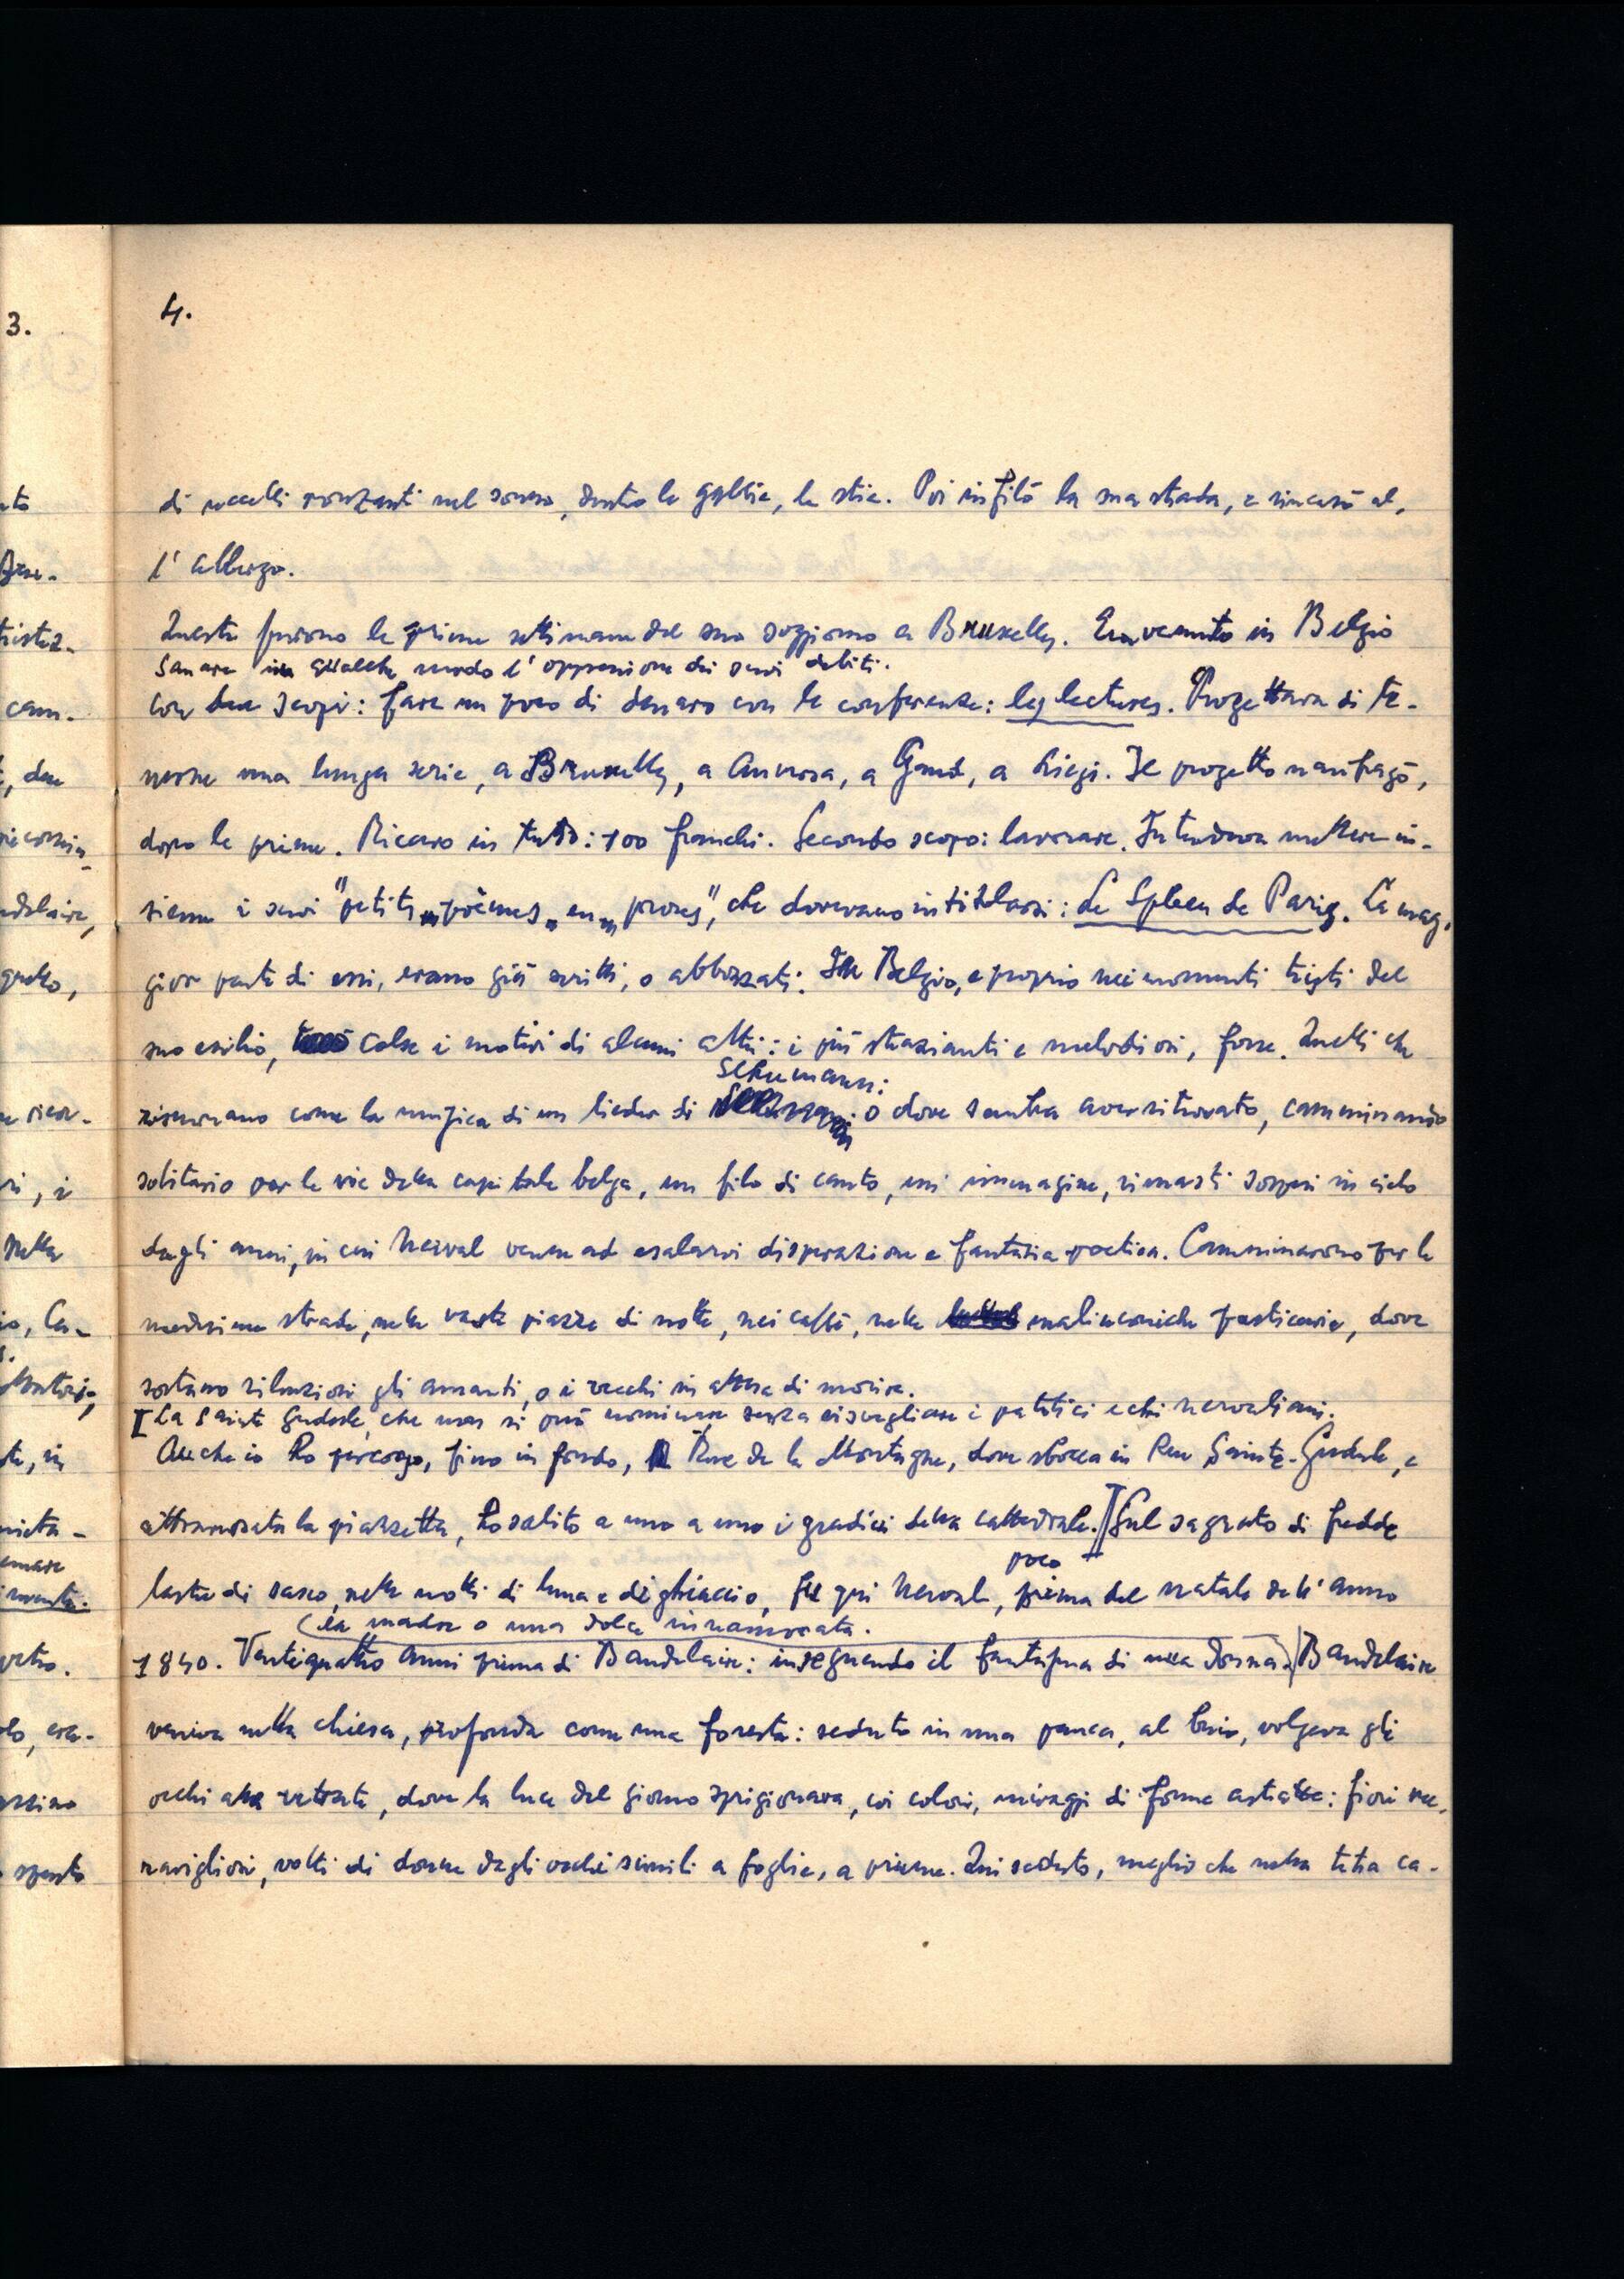 3.
4.
di uccelli ronzanti nel sonno, dentro le gabbie, le stie. Poi infilò la sua strada, e rincasò al,
l'albergo.
Queste furono le prime settimane del suo soggiorno a Bruxelles. Era venuto in Belgio
sanare in qualche modo l'oppressione dei suoi debiti.
con due scopi: fare un poco di denaro con le conferenze: les lectures. Progettava di te-
nerne una lunga serie, a Bruxelles, a Anversa, a Gand, a Liegi. Il progetto naufragò,
dopo le prime. Ricavo in tutto: 100 franchi. Secondo scopo: lavorare. Intendeva mettere in-
sieme i suoi "petits poèmes en proses", che dovevano intitolarsi: Le Spleen de Paris. La mag,
gior parte di essi, erano già scritti, o abbozzati. In Belgio, e proprio nei momenti tristi del
suo esilio, colse i motivi di alcuni altri: i più strazianti e melodiosi, forse. Quelli che
Schumann:
risuonano come la musica di un lieder di o dove sembra aver ritrovato, camminando
solitario per le vie della capitale belga, un filo di canto, un'immagine, rimasti sospesi in cielo
dagli anni, in cui Nerval venne ad esalarvi disperazione e fantasia poetica. Camminarono per le
medesime strade, nelle vaste piazze di notte, nei caffè, nelle malinconiche pasticcerie, dove
sostano silenziosi gli amanti, o i vecchi in attesa di morire.
[La Sainte Gudule, che non si può nominare senza risvegliare i patetici echi nervaliani.
Anche io ho percorso, fino in fondo, Rue de la Montagne, dove sbocca in Rue Sainte-Gudule, e
attraversata la piazzetta, ho salito a uno a uno i gradini della cattedrale. Sul sagrato di fredde
poco
lastre di sasso, nelle notti di luna e di ghiaccio, fu qui Nerval, prima del natale dell'anno
la madre o una dolce innamorata.
1840. Ventiquattro anni prima di Baudelaire: inseguendo il fantasma di una donna. Baudelaire
veniva nella chiesa, profonda come una foresta: seduto in una panca, al buio, volgeva gli
occhi alle vetrate, dove la luce del giorno sprigionava, coi colori, miraggi di forme astratte: fiori me,
ravigliosi, volti di donne dagli occhi simili a foglie, a piume. Qui seduto, meglio che nella tetra ca-